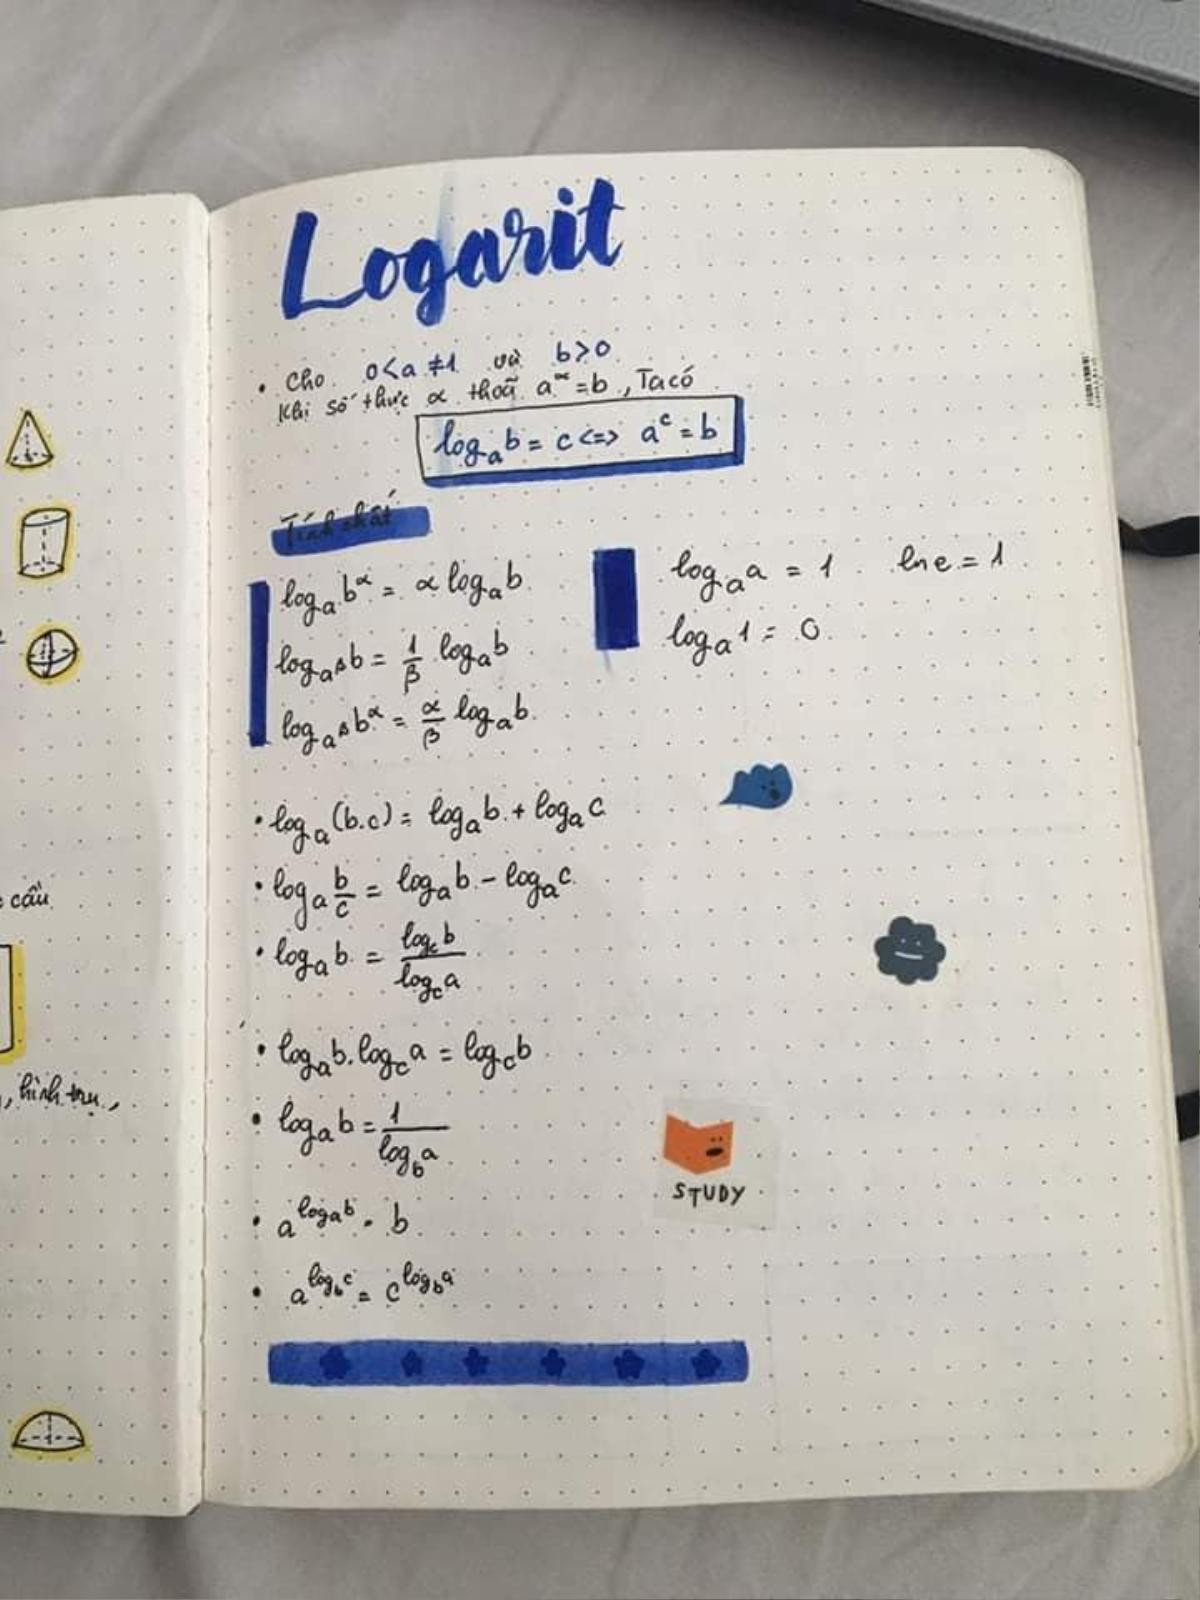 Logarit
• Cho 0<a≠1 và b>0
Khi số thực α thoã a^α = b, Ta có
log_a b = c <=> a^c = b
Tính chất
log_a b^α = α log_a b
log_{a^β} b = 1/β log_a b
log_{a^β} b^α = α/β log_a b
log_a a = 1 ln e = 1
log_a 1 = 0
• log_a (b.c) = log_a b + log_a c
• log_a b/c = log_a b - log_a c
• log_a b = log_c b / log_c a
• log_a b . log_c a = log_c b
• log_a b = 1 / log_b a
• a^{log_a b} = b
• a^{log_b c} = c^{log_b a}
STUDY
cầu
, hình trụ,